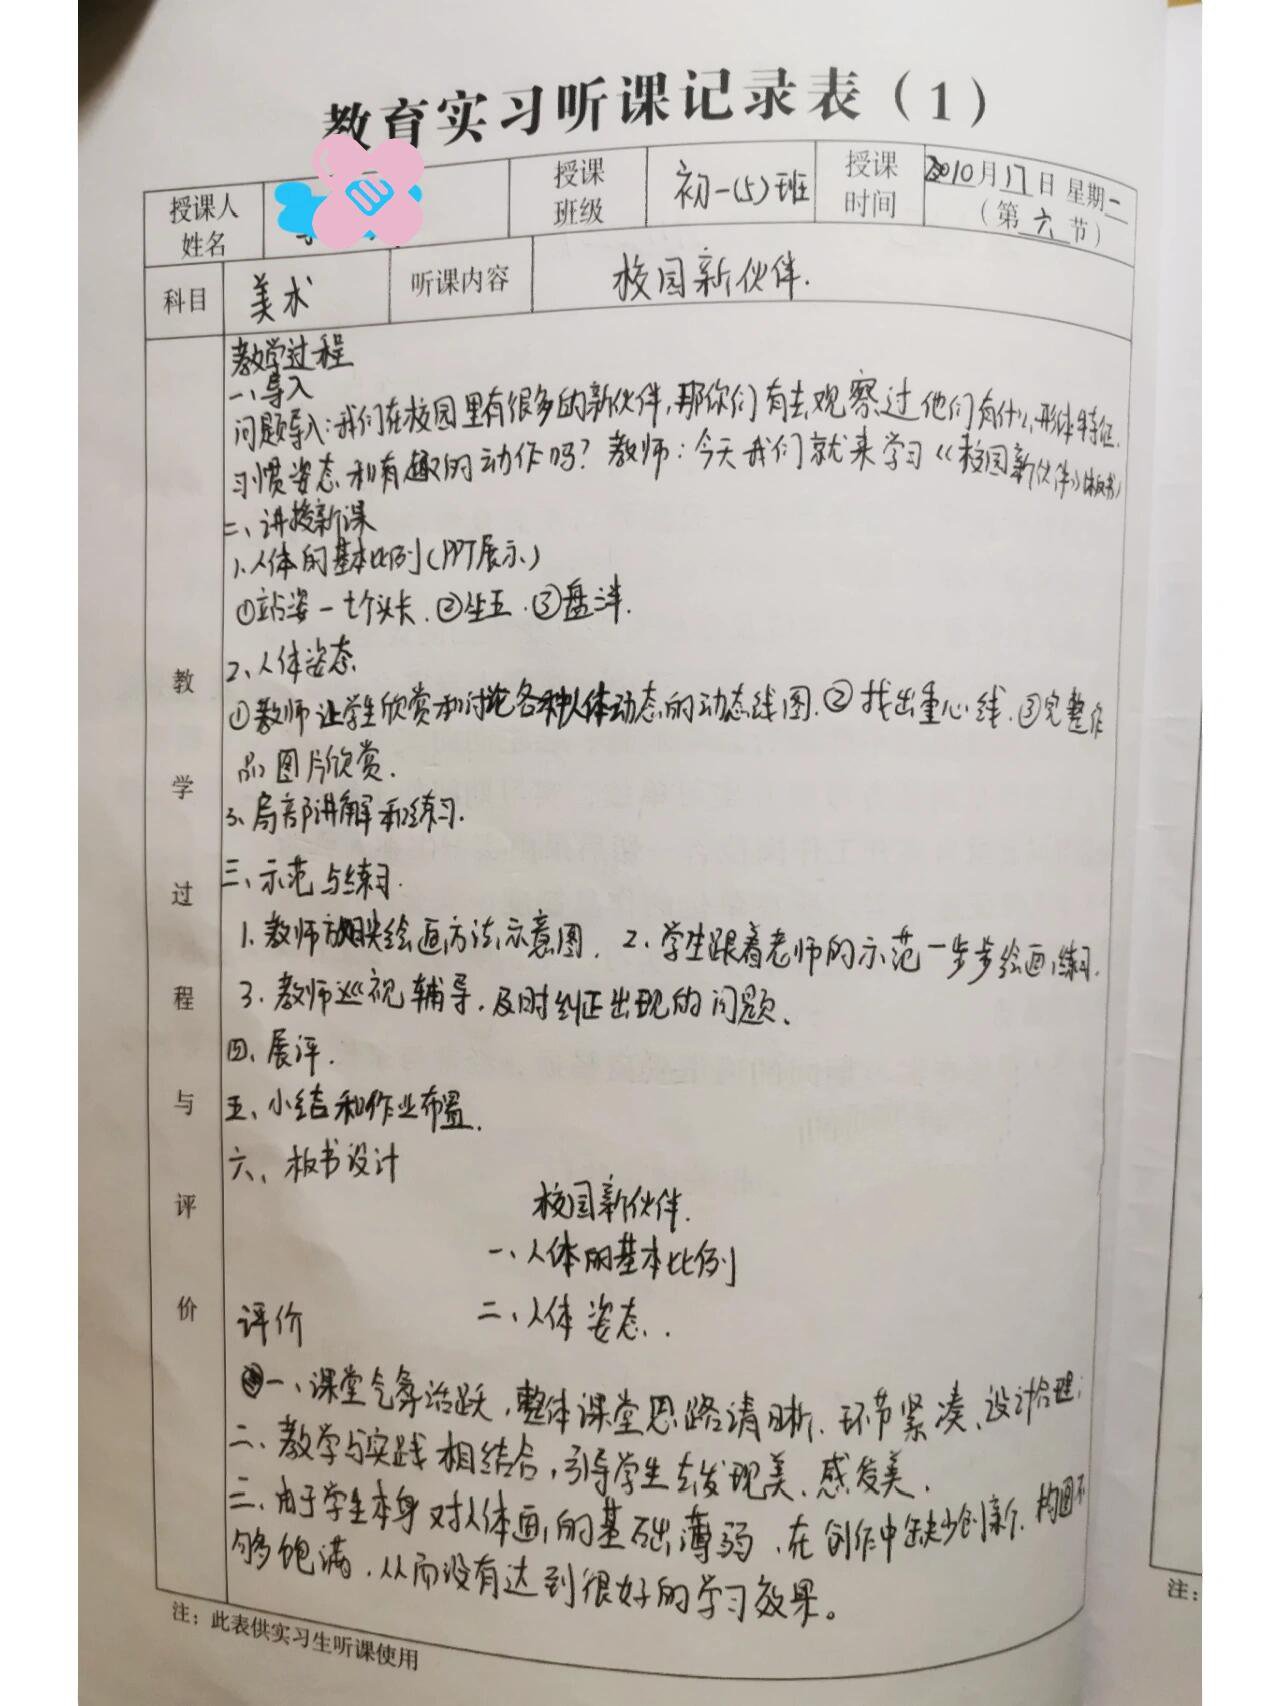 教育实习听课记录表（1）
授课人
姓名
授课
班级
初一(5)班
授课
时间
10月17日 星期二
（第六节）
科目
美术
听课内容
校园新伙伴.
教学过程与评价
教学过程
一、导入
问题导入:我们在校园里有很多的新伙伴,那你们有去观察过他们有什么形体特征.
习惯姿态和有趣的动作吗? 教师:今天我们就来学习《校园新伙伴》(板书)
二、讲授新课
1.人体的基本比例(PPT展示)
①站姿一七个头长.②坐五.③盘
2、人体姿态
①教师让学生欣赏和讨论各种人体动态的动态线图.②找出重心线.③完整作
品图片欣赏.
3、局部讲解和练习.
三、示范与练习.
1.教师放映绘画方法示意图. 2、学生跟着老师的示范一步步绘画练习.
3.教师巡视辅导.及时纠正出现的问题、
四、展评.
五、小结和作业布置.
六、板书设计
校园新伙伴.
一、人体的基本比例
二、人体姿态..
评价
一、课堂气氛活跃,整体课堂思路清晰.环节紧凑、设计合理;
二、教学与实践相结合,引导学生去发现美、感发美.
三、由于学生本身对人体画的基础薄弱、在创作中缺少创新.构图不
够饱满.从而没有达到很好的学习效果。
注：此表供实习生听课使用
注：